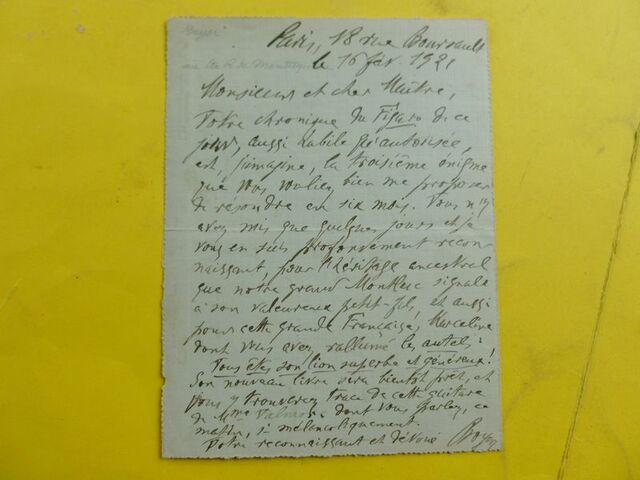 Paris, 18 rue Boursault
le 16 fév. 1921
Monsieur et cher Maître,
Votre chronique du Figaro de ce
jour, aussi habile qu'autorisée,
est, j'imagine, la troisième énigme
que vous vouliez bien me proposer
de résoudre en six mois. Vous n'y
avez mis que quelques jours et je
vous en suis profondément recon-
naissant, pour l'héritage ancestral
que notre grand Montluc signale
à son valeureux petit-fils, et aussi
pour cette grande Française, Marceline
dont vous avez rallumé les autels :
Vous êtes son lion superbe et généreux !
Son nouveau livre sera bientôt prêt, et
vous y trouverez trace de cette guitare
de Mme Valmore dont vous parlez, ce
matin, si mélancoliquement.
Votre reconnaissant et dévoué
Boyer